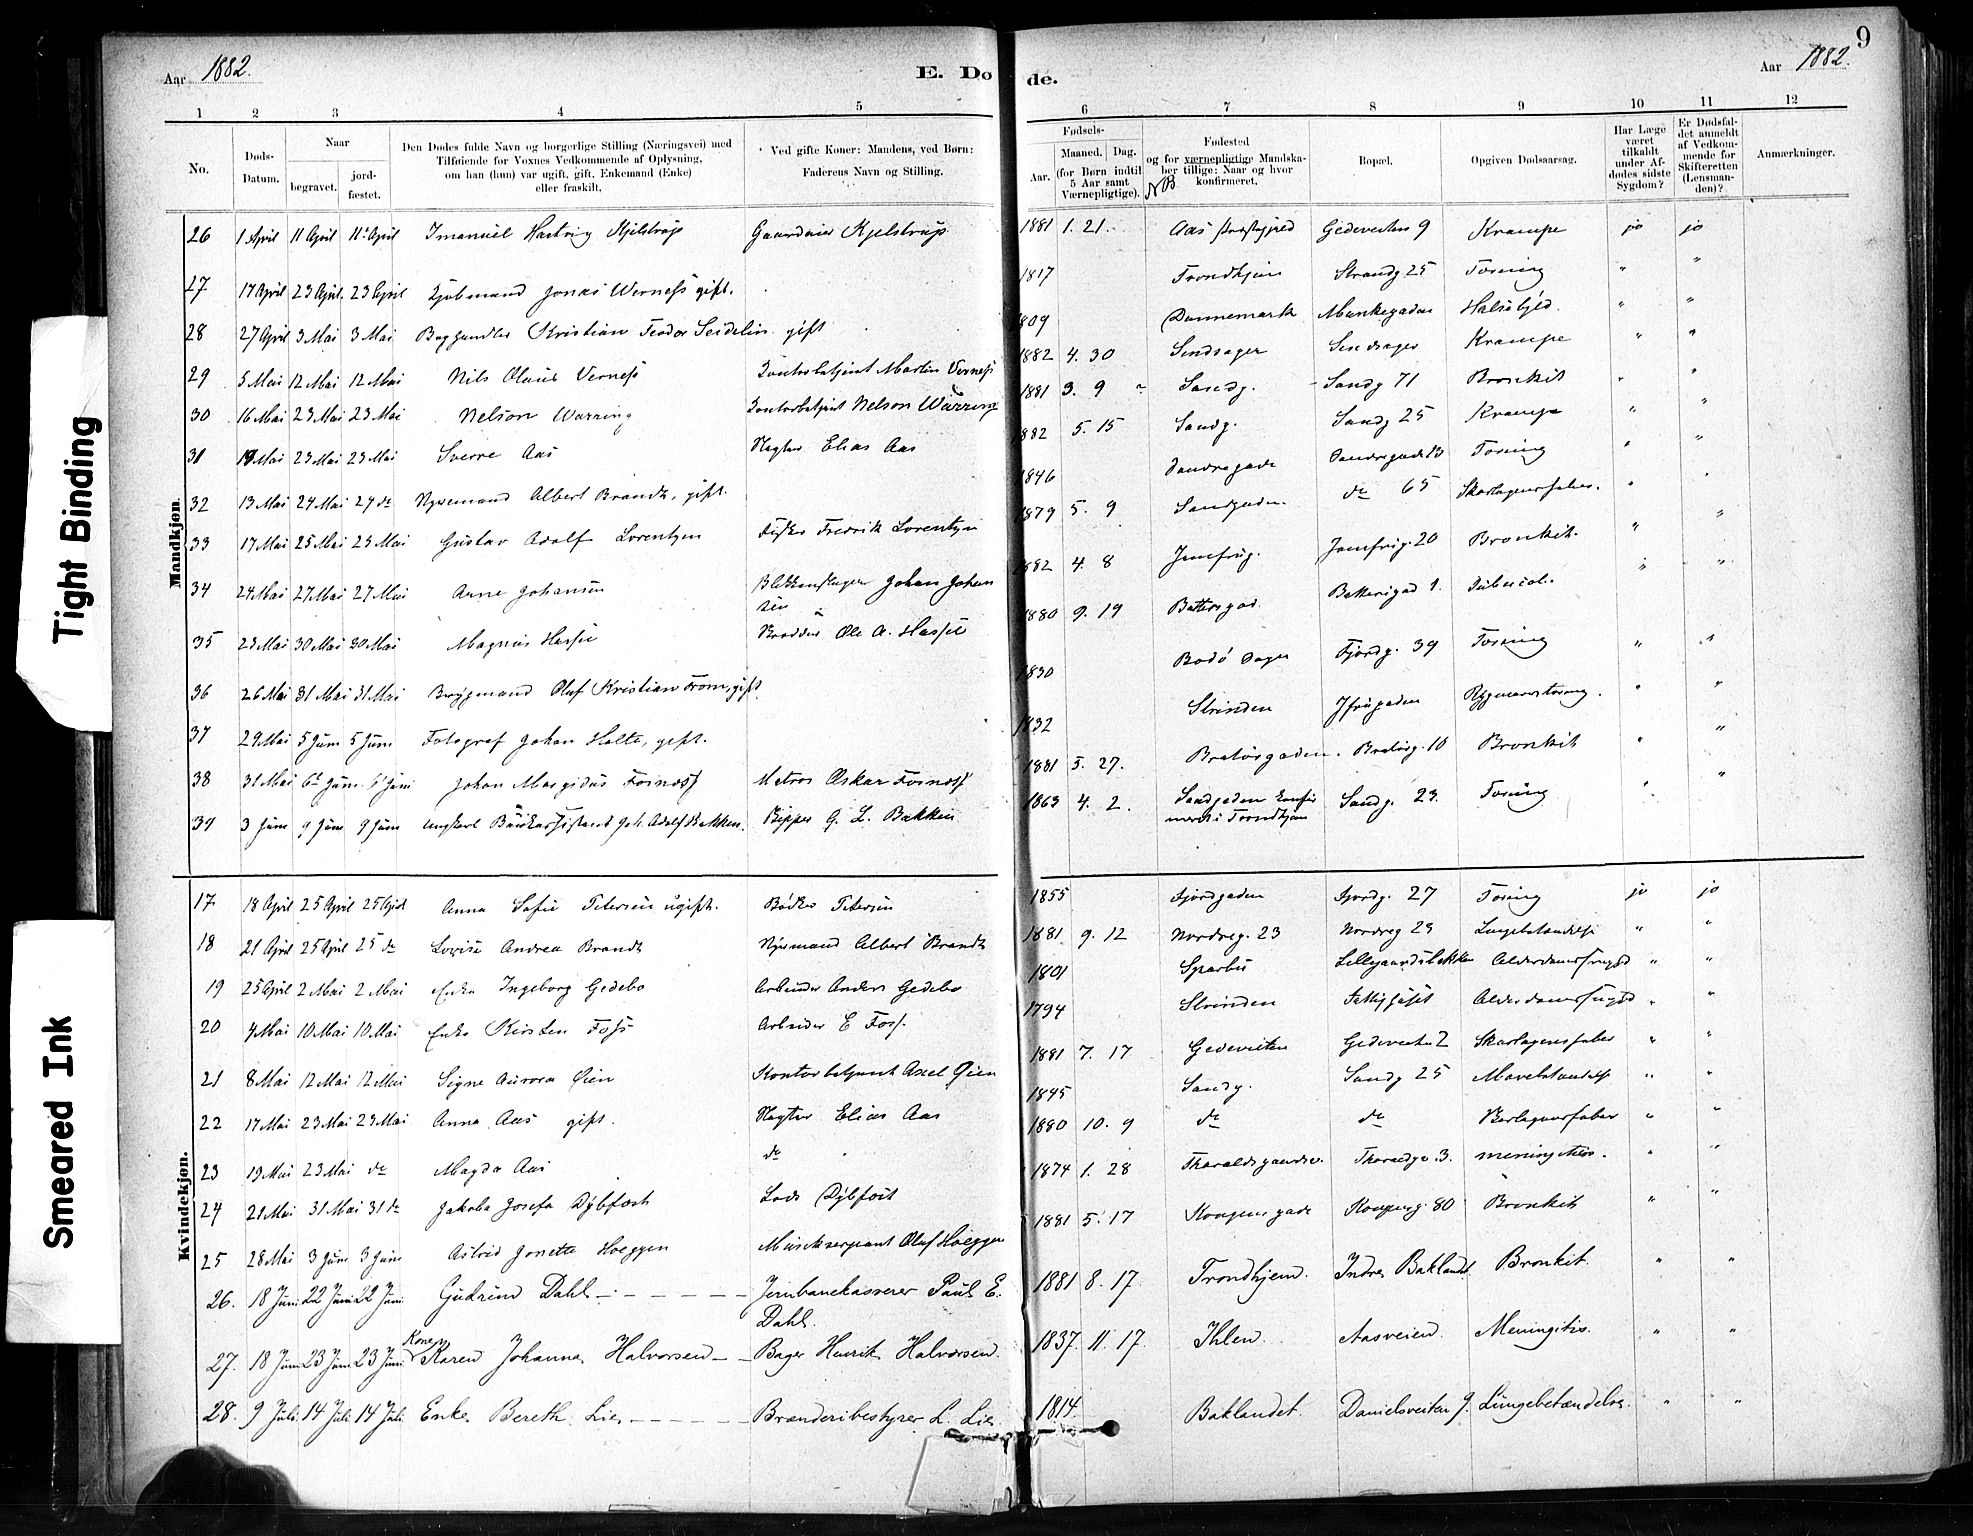 9
Aar 1882.
E. Døde.
Aar 1882.
1 2 3 4 5 6 7 8 9 10 11 12
No.
Døds-Datum.
Naar
begravet.
jordfæstet.
Den Dødes fulde Navn og borgerlige Stilling (Næringsvei) med
Tilføiende for Voxnes Vedkommende af Oplysning,
om han (hun) var ugift, gift, Enkemand (Enke)
eller fraskilt.
Ved gifte Koner: Mandens, ved Børn:
Faderens Navn og Stilling.
Fødsels-
Aar.
Maaned. Dag.
(for Børn indtil
5 Aar samt
Værnepligtige).
Fødested
og for værnepligtige Mandska-
ber tillige: Naar og hvor
konfirmeret.
NB
Bopæl.
Opgiven Dødsaarsag.
Har Læge
været
tilkaldt
under Af-
dødes sidste
Sygdom?
Er Dødsfal-
det anmeldt
af Vedkom-
mende for
Skifteretten
(Lensman-
den)?
Anmærkninger.
Mandkjøn.
26 1 April 11 April 11 April Imanuel Hartvig Kjelstrup Gaardeier Kjelstrup 1881 1. 21. Aas Gedeveiten 9 Krampe jo jo
27 17 April 23 April. 23 April Kjøbmand Jonas Werness gift. 1817 Trondhjem Strandg 25 Tæring " "
28 27 April 3 Mai 3 Mai Boghandler Kristian Teodor Seidelin gift 1809 Dannemark Munkegaden " "
29 5 Mai 12 Mai 12 Mai Nils Olaus Verness Kontorbetjent Martin Verness 1882 4. 30 Krampe " "
30 16 Mai 23 Mai 23 Mai Nelson Warring Kontorbetjent Nelson Warring 1881 3. 9 Sandg. Sandg 71 Bronkit " "
31 19 Mai 23 Mai 23 Mai Sverre Aas Elias Aas 1882 5. 15 Sandg. Sandg 25 Krampe " "
32 13 Mai 24 Mai 24 do Albert Brandt, gift. 1846 Søndregade Tæring " "
33 17 Mai 25 Mai 25 Mai Gustav Adolf Lorentzen Fisker Fredrik Lorentzen 1879 5. 9 Sandgaden do 65 Skarlagensfeber. " "
34 24 Mai 27 Mai 27 Mai Arne Johansen Blikkenslager Johan Johansen 1882 4. 8 Jomfrug. Jomfrug. 20 Bronkit. " "
35 23 Mai 30 Mai 30 Mai Magnus Hassel Ole A. Hassel 1880 9. 19 " "
36 26 Mai 31 Mai 31 Mai Brygmand Oluf Kristian From, gift. 1830 Fjordg. 39 Tæring " "
37 29 Mai 5 Juni 5 Juni Fotograf Johan Holte, gift. 1832 Strinden Jfrugaden Rygmarvstæring. " "
38 31 Mai 6 Juni 6 Juni Johan Margidus Fosness Oskar Fosness 1881 3. 27. Bratørgaden. Bratørg. 10 Bronkit " "
39 3 Juni 9 Juni 9 Juni ungkarl Joh. Adolf Bakken. G. L. Bakken 1863 4. 2. Sandgaden konfirmeret i Trondhjem Sandg. 23. Tæring " "
Kvindekjøn.
17 18 April 25 April 25 April Anna Sofie Petersen ugift. Bødker Petersen 1855 Fjordgaden Fjordg. 27 Tæring jo jo
18 21 April 25 April 25 do Lovise Andrea Brandt Albert Brandt 1881 9. 12 Nordreg. 23 Nordreg 23 Lungebetændelse " "
19 25 April 2 Mai 2 Mai Enke Ingeborg Gedebo Arbeider Anders Gedebo 1801 Sparbu Lillegaardsbakken Alderdomssvaghed " "
20 4 Mai 10 Mai 10 Mai Enke Kirsten Foss Arbeider E Foss. 1794 Strinden Fattighuset Alderdomssvaghed " "
21 8 Mai 12 Mai 12 Mai Signe Aurora Øien Kontorbetjent Axel Øien 1881 7. 17 Gedeveiten Gedeveiten 2 Skarlagensfeber " "
22 17 Mai 23 Mai 23 Mai Anna Aas gift. Elias Aas 1845 Sandg. Sandg 25 Mavebetændelse " "
23 19 Mai 23 Mai do Magda Aas do 1880 10. 9 do do " "
24 21 Mai 31 Mai 31 do Jakoba Josefa Dybfest Lods Dybfest 1874 1. 28 Meningitis. " "
25 28 Mai 3 Juni 3 Juni Astrid Jonette Hoeggen Musiksergeant Oluf Hoeggen 1881 5. 17 Kongensgade Kongensg. 80 Bronkit " "
26. 18 Juni 22 Juni 22 Juni. Gudrun Dahl Jernbanekasserer Paul E. Dahl. 1881 8. 17. Trondhjem. Indre Baklandet Bronkit. " "
27. 18 Juni 23 Juni 23 Juni. Kone Karen Johanna Halvorsen Bager Henrik Halvorsen. 1837. 11. 17. Ihlen. Aasveien. Meningitis. " "
28. 9 Juli 14 Juli 14 Juli. Enke Bereth Lie Brænderibestyrer L. Lie 1814. Baklandet. Danielsveiten 9. Lungebetændelse. " "
Tight Binding
Smeared Ink